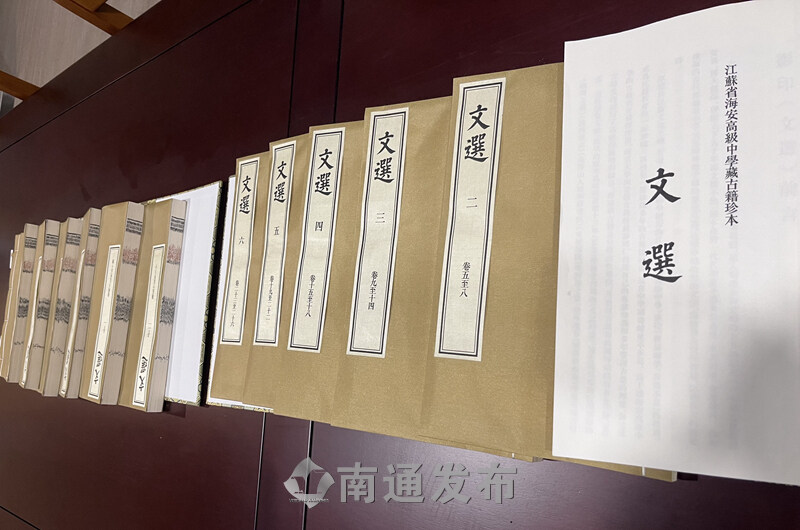 江蘇省海安高級中學藏古籍珍本
文選
文選
二
卷五至八
文選
三
卷九至十四
文選
四
卷十五至十八
文選
五
卷十九至二十二
文選
六
南通发布